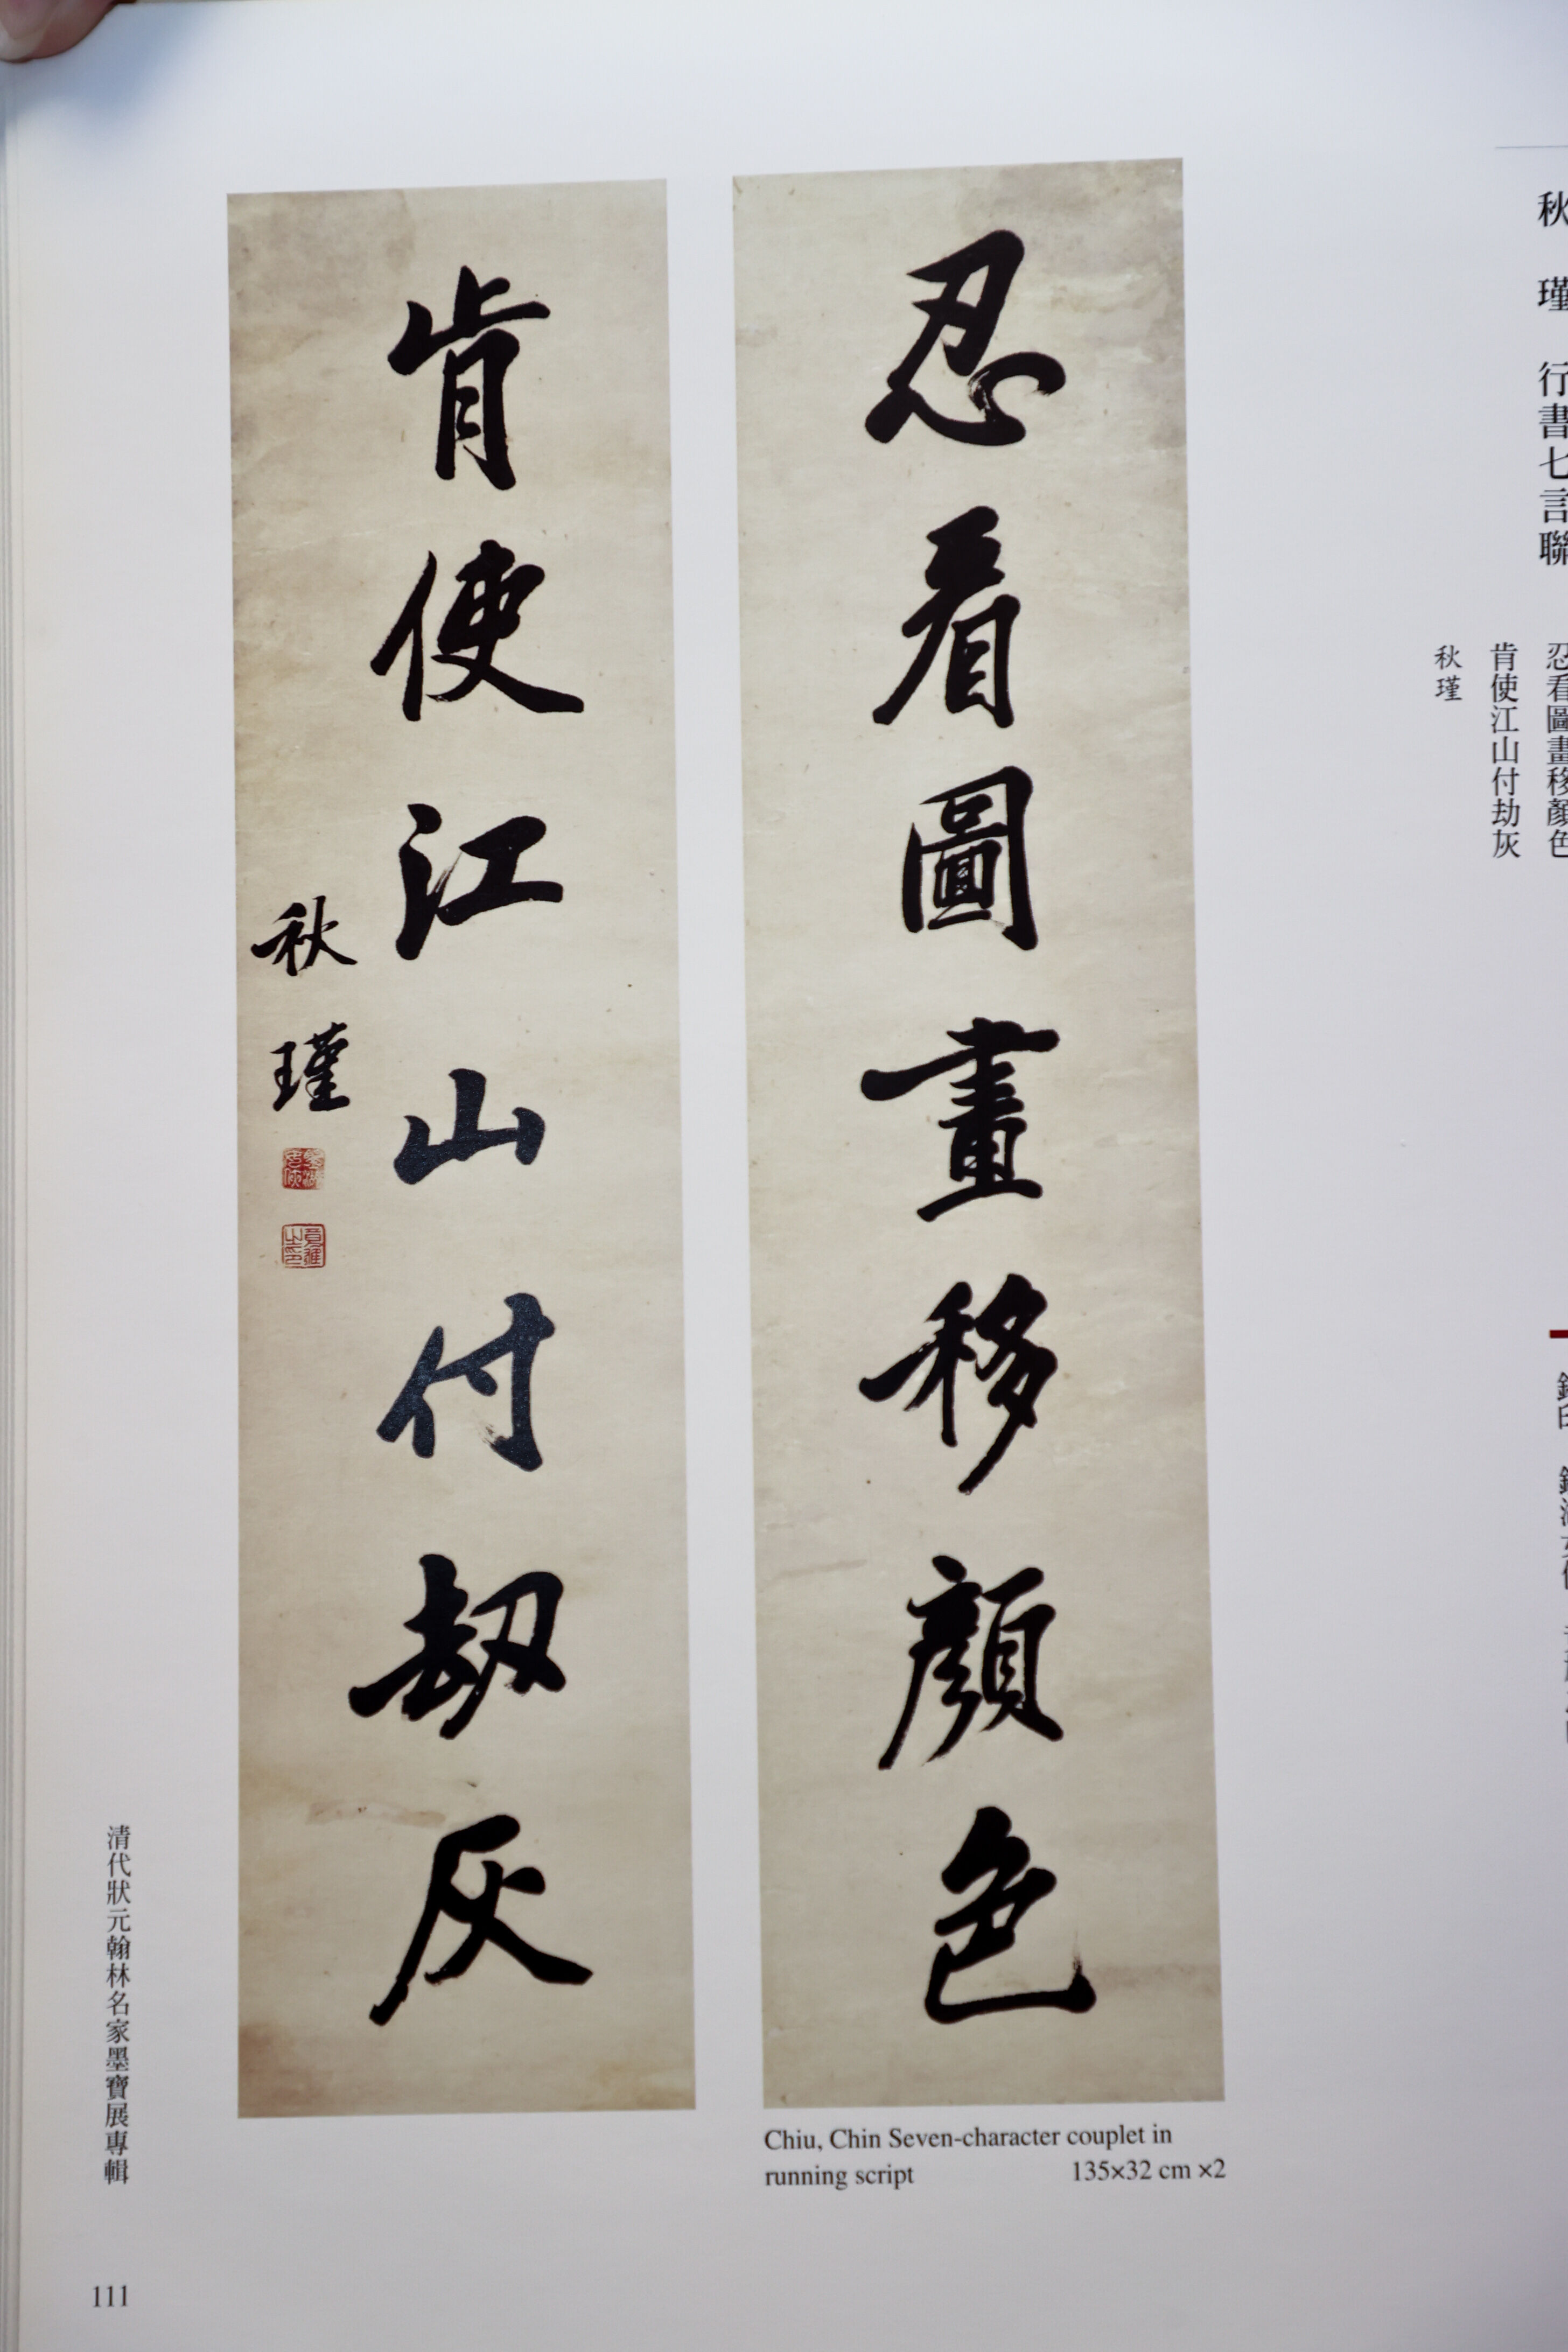 秋瑾 行書七言聯
忍看圖畫移顏色
肯使江山付劫灰
秋瑾
忍看圖畫移顏色
肯使江山付劫灰
秋瑾
Chiu, Chin Seven-character couplet in
running script 135×32 cm ×2
清代狀元翰林名家墨寶展專輯
111